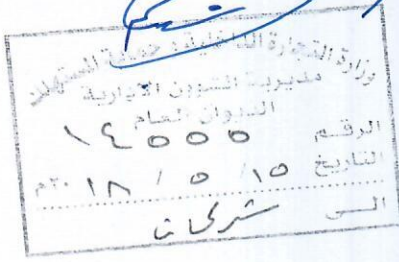 وزارة التجارة الداخلية و حماية المستهلك
مديرية الشؤون الإدارية
الديوان العام
الرقم ١٤٥٥٥
التاريخ ١٥ / ٥ / ٢٠١٨ م
الى شركات